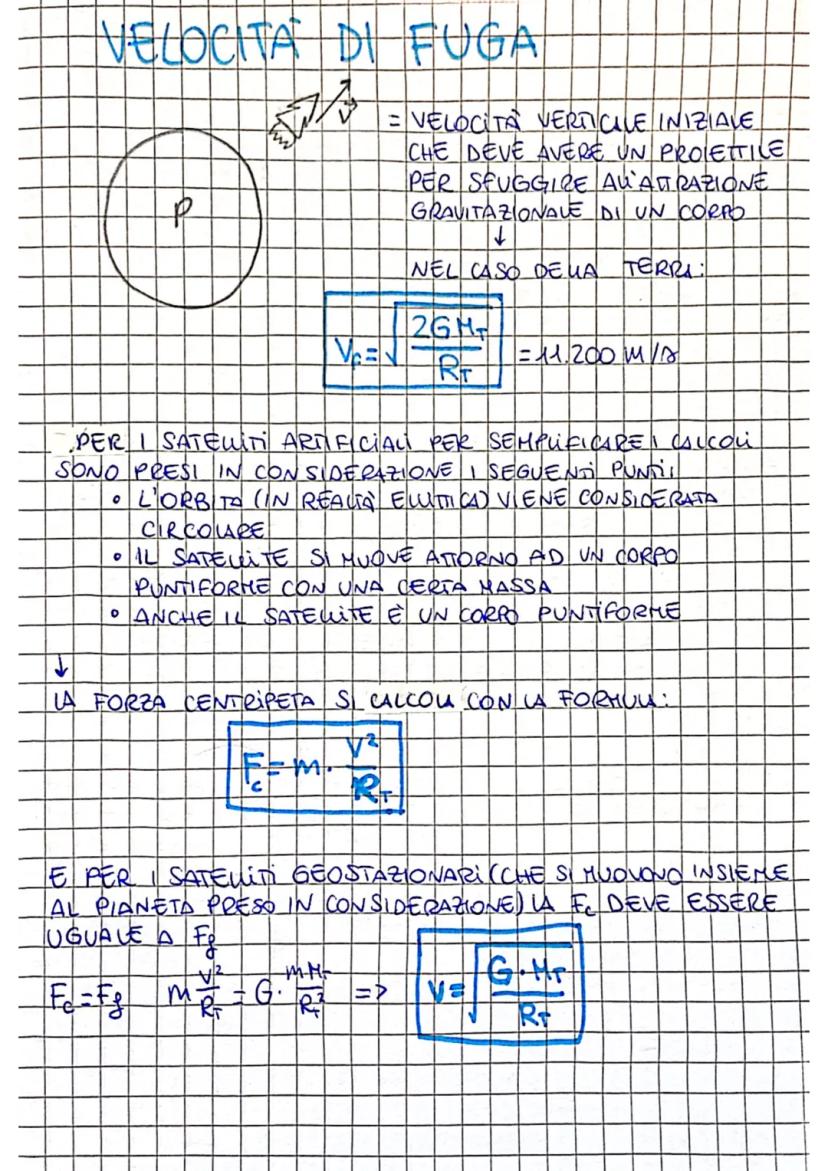 VELOCITÀ DI FUGA
V
= VELOCITÀ VERTICALE INIZIALE
CHE DEVE AVERE UN PROIETTILE
PER SFUGGIRE ALL'ATTRAZIONE
GRAVITAZIONALE DI UN CORPO
P
↓
NEL CASO DELLA TERRA:
VF = √(2GMT / RT) = 11.200 m/s
PER I SATELLITI ARTIFICIALI PER SEMPLIFICARE I CALCOLI
SONO PRESI IN CONSIDERAZIONE I SEGUENTI PUNTI:
• L'ORBITA (IN REALTÀ ELLITTICA) VIENE CONSIDERATA
CIRCOLARE
• IL SATELLITE SI MUOVE ATTORNO AD UN CORPO
PUNTIFORME CON UNA CERTA MASSA
• ANCHE IL SATELLITE È UN CORPO PUNTIFORME
↓
LA FORZA CENTRIPETA SI CALCOLA CON LA FORMULA:
Fc = m · V² / RT
E PER I SATELLITI GEOSTAZIONARI (CHE SI MUOVONO INSIEME
AL PIANETA PRESO IN CONSIDERAZIONE) LA Fc DEVE ESSERE
UGUALE A Fg
Fc = Fg m V²/RT = G · mMT/RT² => V = √(G · MT / RT)